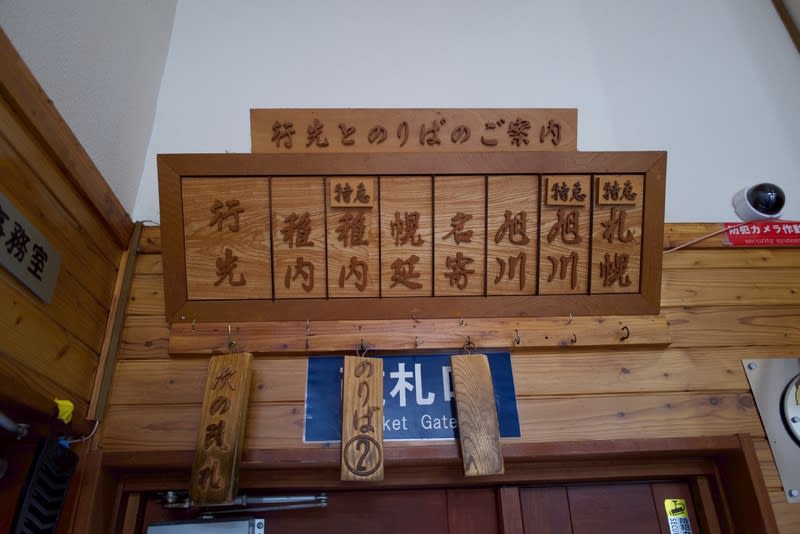 行先とのりばのご案内
行先
稚内
特急
稚内
幌延
名寄
旭川
特急
旭川
特急
札幌
事務室
防犯カメラ作動
security system
次の改札
のりば②
改札口
ket Gate
防犯
SEC